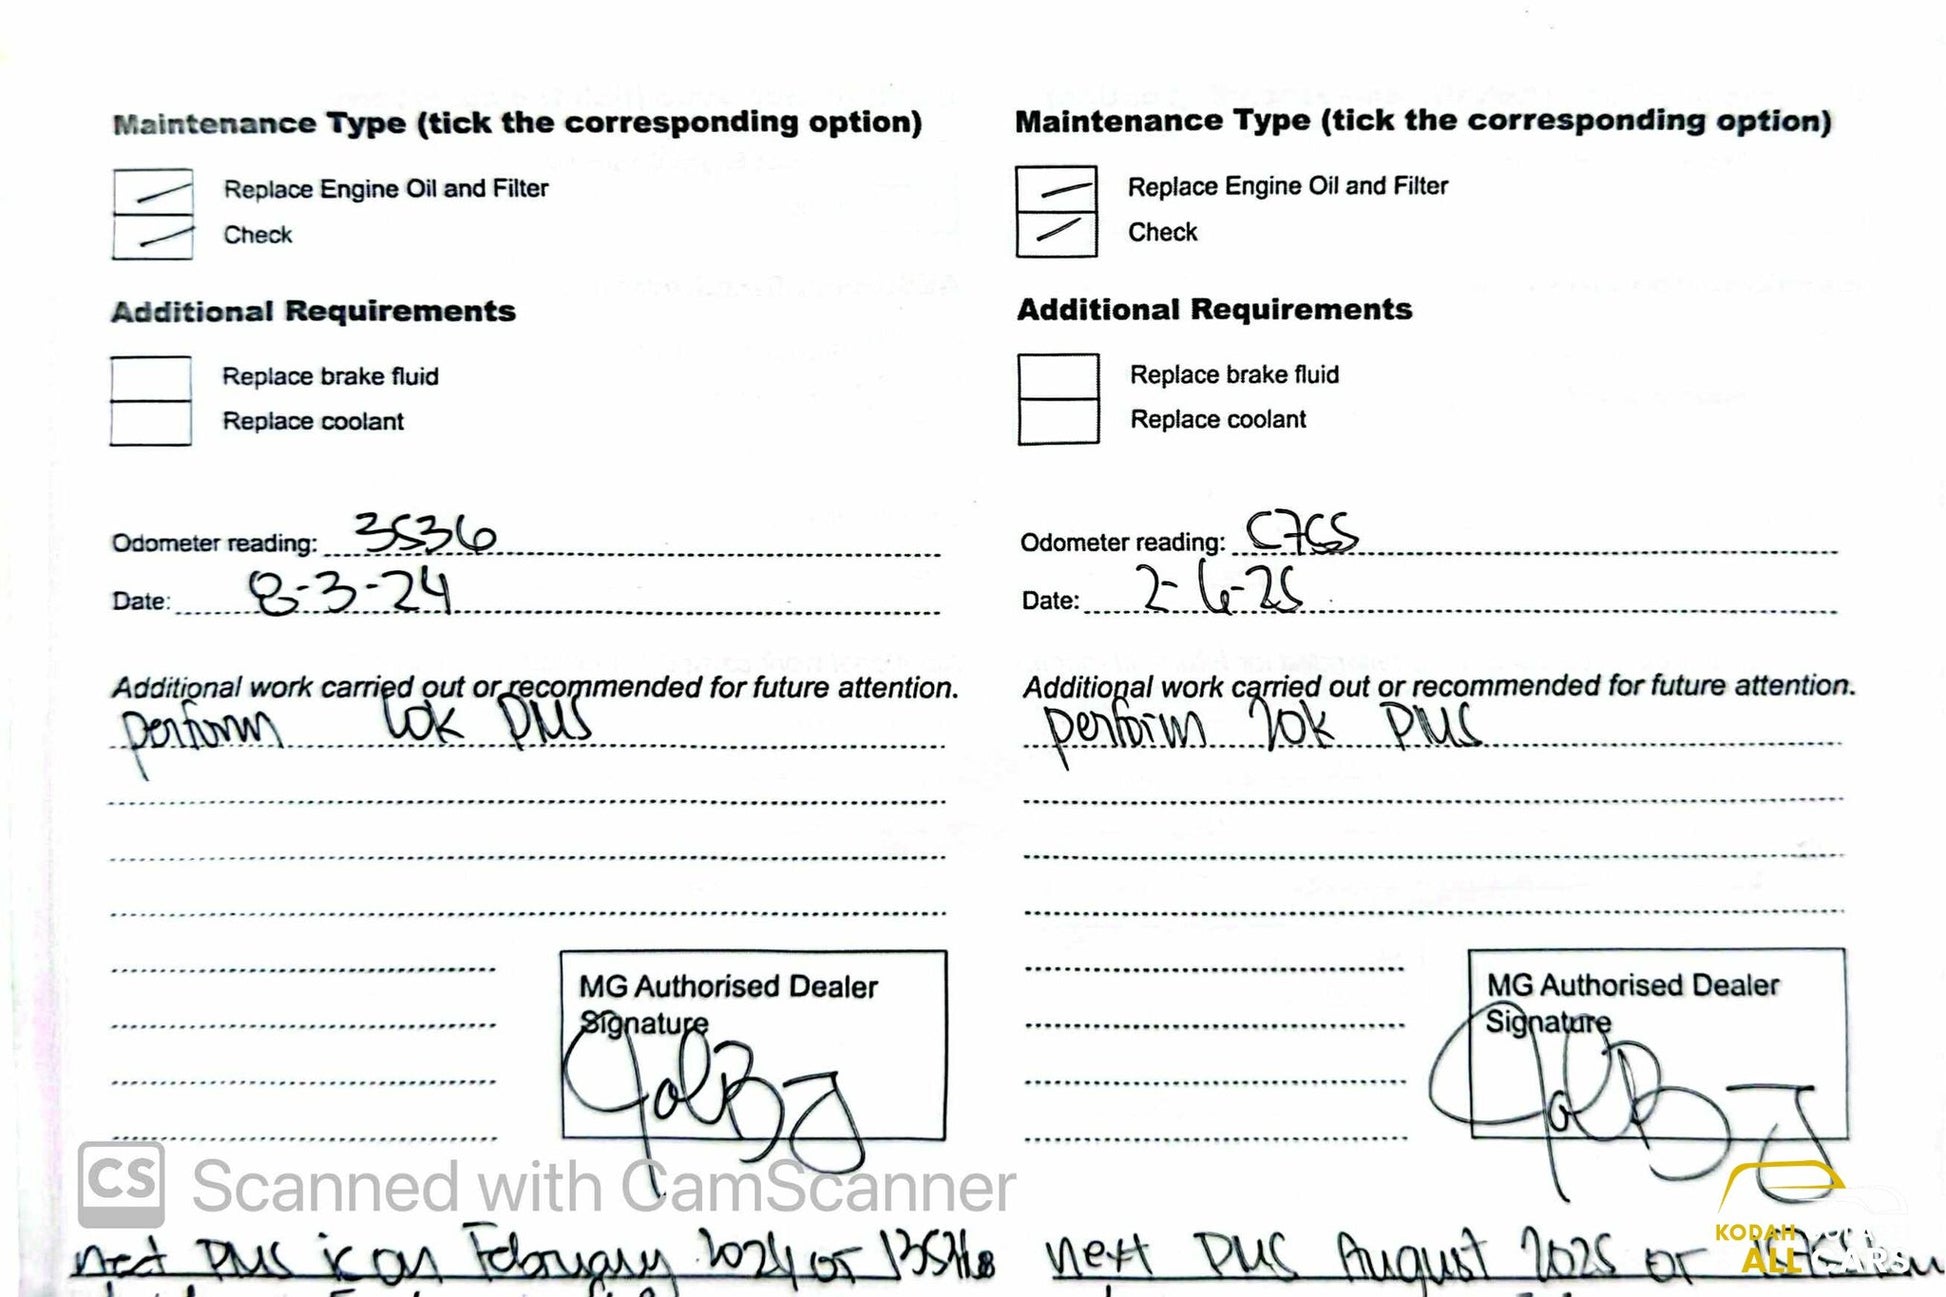 Maintenance Type (tick the corresponding option)
Replace Engine Oil and Filter
Check
Additional Requirements
Replace brake fluid
Replace coolant
Odometer reading: 3536
Date: 8-3-24
Additional work carried out or recommended for future attention.
perform 10k PMS
MG Authorised Dealer
Signature
next PMS is on February 2024 or
Maintenance Type (tick the corresponding option)
Replace Engine Oil and Filter
Check
Additional Requirements
Replace brake fluid
Replace coolant
Odometer reading: 5765
Date: 2-6-25
Additional work carried out or recommended for future attention.
perform 20k PMS
MG Authorised Dealer
Signature
next PMS August 2025 or
CS Scanned with CamScanner
KODAH
ALL CARS